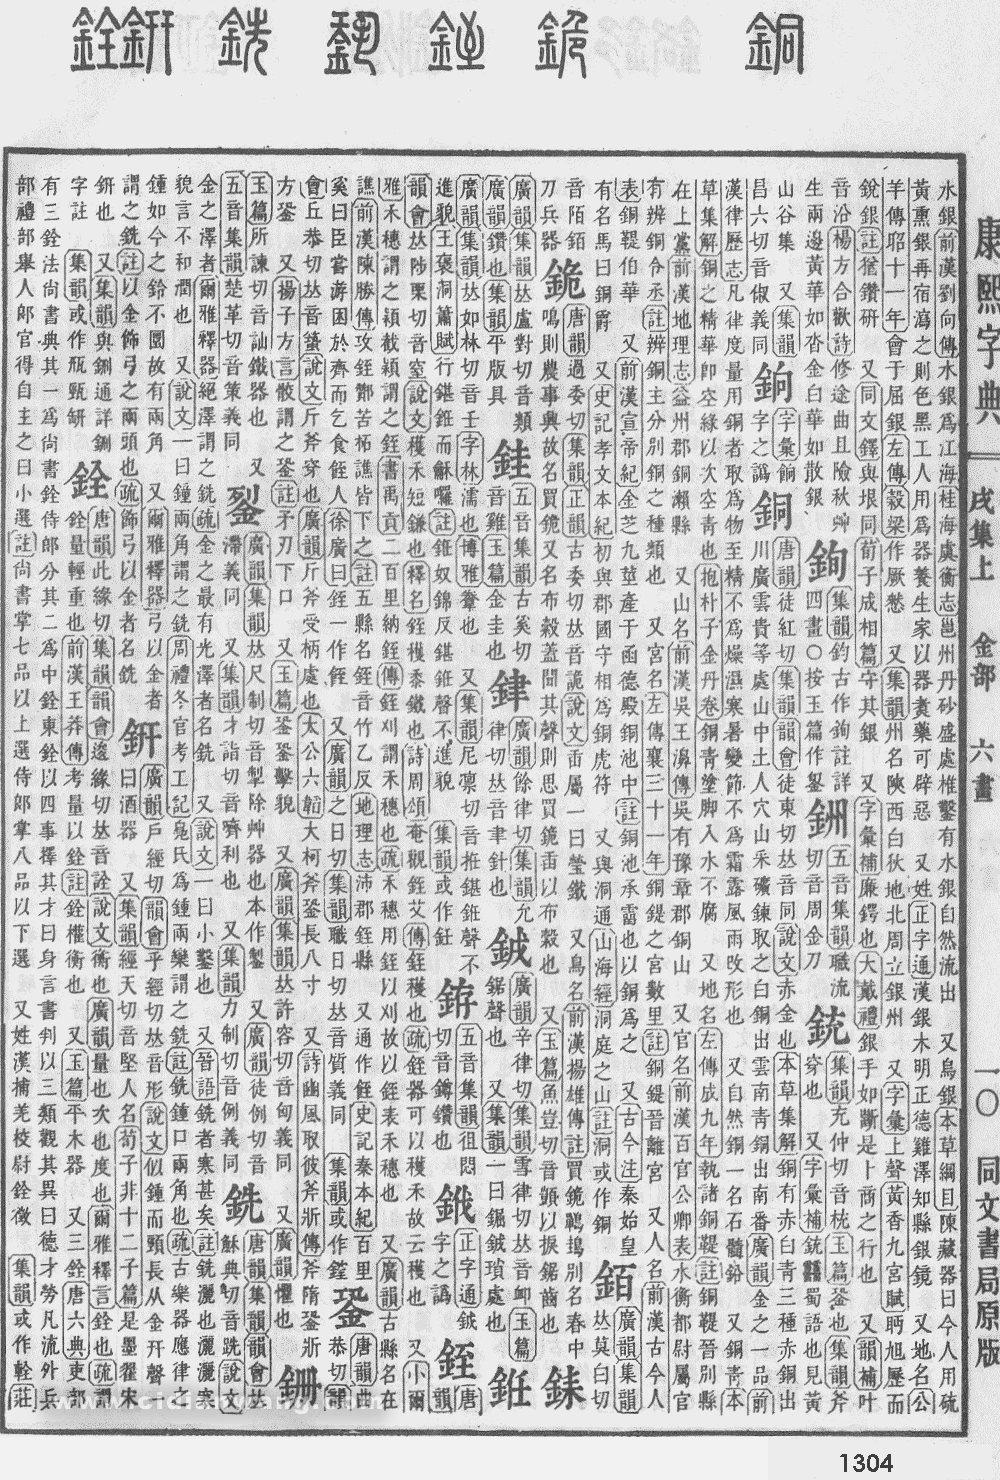 銅 銍 銎 銑 銒 銓
康熙字典 戌集上 金部 六畫 一〇 同文書局原版
水銀前漢劉向傳水銀爲江海桂海虞衡志邕州丹砂盛處椎鑿有水銀自然流出 又鳥銀本草綱目陳藏器曰今人用硫
黃熏銀再宿瀉之則色黑工人用爲器養生家以器煑藥可辟惡 又姓正字通漢銀木明正德雞澤知縣銀鏡 又地名公
羊傳昭十一年會于屈銀左傳穀梁作厥憖 又集韻州名陝西白狄地北周立銀州 又字彙上聲黃香九宮賦眄旭歷而
銳銀註猶鑽研 又同文鐸與垠同荀子成相篇守其銀 又字彙補廉鍔也大戴禮銀手如斷是卜商之行也 又韻補叶
音沿楊方合歡詩修途曲且險秋艸生兩邊黃華如沓金白華如散銀 銁集韻鈞古作銁註詳四畫〇按玉篇作銞 銂五音集韻職流切音周金刀 銃集韻充仲切音㧁玉篇銎也集韻斧穿也 又字彙補銃縣蜀語也見黃
山谷集 又集韻昌六切音俶義同 銄字彙餉字之譌 銅唐韻徒紅切集韻韻會徒東切𠀤音同說文赤金也本草集解銅有赤白青三種赤銅出
川廣雲貴等處山中土人穴山采礦鍊取之白銅出雲南青銅出南番廣韻金之一品前
漢律歷志凡律度量用銅者取爲物至精不爲燥濕寒暑變節不爲霜露風雨改形也 又自然銅一名石髓鉛 又銅青本
草集解銅之精華卽空綠以次空青也抱朴子金丹卷銅青塗脚入水不腐 又地名左傳成九年執諸銅鞮註銅鞮晉別縣
在上黨前漢地理志益州郡銅瀨縣 又山名前漢吳王濞傳吳有豫章郡銅山 又官名前漢百官公卿表水衡都尉屬官
有辨銅令丞註辨銅主分別銅之種類也 又宮名左傳襄三十一年銅鍉之宮數里註銅鍉晉離宮 又人名前漢古今人
表銅鞮伯華 又前漢宣帝紀金芝九莖產于函德殿銅池中註銅池承霤也以銅爲之 又古今注秦始皇
有名馬曰銅爵 又史記孝文本紀初與郡國守相爲銅虎符 又與洞通山海經洞庭之山註洞或作銅 銆廣韻集韻𠀤莫白切
音陌銆刀兵器 銗唐韻過委切集韻正韻古委切𠀤音詭說文臿屬一曰瑩鐵 又鳥名前漢揚雄傳註買鵙鶗鴂別名春中
鳴則農事興故名買鵙又名布穀蓋聞其聲則思買銗臿以布穀也 又玉篇魚豈切音顗以捩鋸齒也 銇
廣韻集韻𠀤盧對切音類廣韻鑽也集韻平版具 銈五音集韻古奚切音雞玉篇金圭也 銉廣韻餘律切集韻允律切𠀤音聿針也 銊廣韻辛律切集韻雪律切𠀤音卹玉篇鋸聲也 又集韻一曰鋸銊瑣處也 銋
廣韻集韻𠀤如林切音壬字林濡也博雅韏也 又集韻尼稟切音拰鍖銋聲不進貌王褒洞簫賦行鍖銋而龢囉註銋奴錦反鍖銋聲不進貌 集韻或作鈓 銌五音集韻徂悶切音鐏鑽也 銊正字通銊字之譌 銍唐韻
韻會𠀤陟栗切音窒說文穫禾短鎌也釋名銍穫黍鐵也詩周頌奄觀銍艾傳銍穫也疏銍器可以穫禾故云穫也 又小爾
雅禾穗謂之穎截穎謂之銍書禹貢二百里納銍傳銍刈謂禾穗也疏禾穗用銍以刈故以銍表禾穗也 又廣韻古縣名在
譙前漢陳勝傳攻銍酇苦柘譙皆下之註五縣名銍音竹乙反地理志沛郡銍縣 又通作䬹史記秦本紀百里
奚曰臣嘗游困於齊而乞食䬹人徐廣曰銍一作䬹 又廣韻之日切集韻職日切𠀤音質義同 集韻或作𨮹 銎唐韻曲恭切韻
會丘恭切𠀤音蛩說文斤斧穿也廣韻斤斧受柄處也太公六韜大柯斧銎長八寸 又詩豳風取彼斧斨傳斧隋銎斨
方銎 又揚子方言骹謂之銎註矛刃下口 又玉篇銎銎擊貌 又廣韻集韻𠀤許容切音匈義同 又廣韻懼也 銏
玉篇所諫切音訕鐵器也 又五音集韻楚革切音策義同 銐廣韻集韻𠀤尺制切音掣除艸器也本作㓼 又廣韻徒例切音滯義同 又集韻才詣切音嚌利也 又集韻力制切音例義同 銑唐韻集韻韻會𠀤穌典切音跣說文
金之澤者爾雅釋器絕澤謂之銑疏金之最有光澤者名銑 又說文一曰小鑿也 又晉語銑者寒甚矣註銑灑也灑灑寒
貌言不和潤也 又說文一曰鐘兩角謂之銑周禮冬官考工記鳧氏爲鍾兩欒謂之銑註銑鍾口兩角也疏古樂器應律之
鍾如今之鈴不圜故有兩角 又爾雅釋器弓以金者謂之銑註以金飾弓之兩頭也疏飾弓以金者名銑 銒廣韻戶經切韻會乎經切𠀤音形說文似鍾而頸長从金幵聲
曰酒器 又集韻經天切音堅人名荀子非十二子篇是墨翟宋
銒也 又集韻與鉶通詳鉶字註 集韻或作瓶甄研 銓唐韻此緣切集韻韻會逡緣切𠀤音詮說文衡也廣韻量也次也度也爾雅釋言銓也疏謂
銓量輕重也前漢王莽傳考量以銓註銓權衡也 又玉篇平木器 又三銓唐六典吏部
有三銓法尚書典其一爲尚書銓侍郎分其二爲中銓東銓以四事擇其才曰身言書判以三類觀其異曰德才勞凡流外兵
部禮部舉人郎官得自主之曰小選註尚書掌七品以上選侍郎掌八品以下選 又姓漢捕羌校尉銓徵 集韻或作輇莊
1304